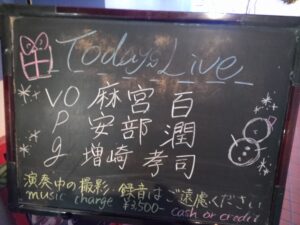 Today's Live
VO 麻宮 百
P 安部 潤
g 増崎 孝司
演奏中の撮影・録音はご遠慮ください
music charge ¥3,500- cash or credit